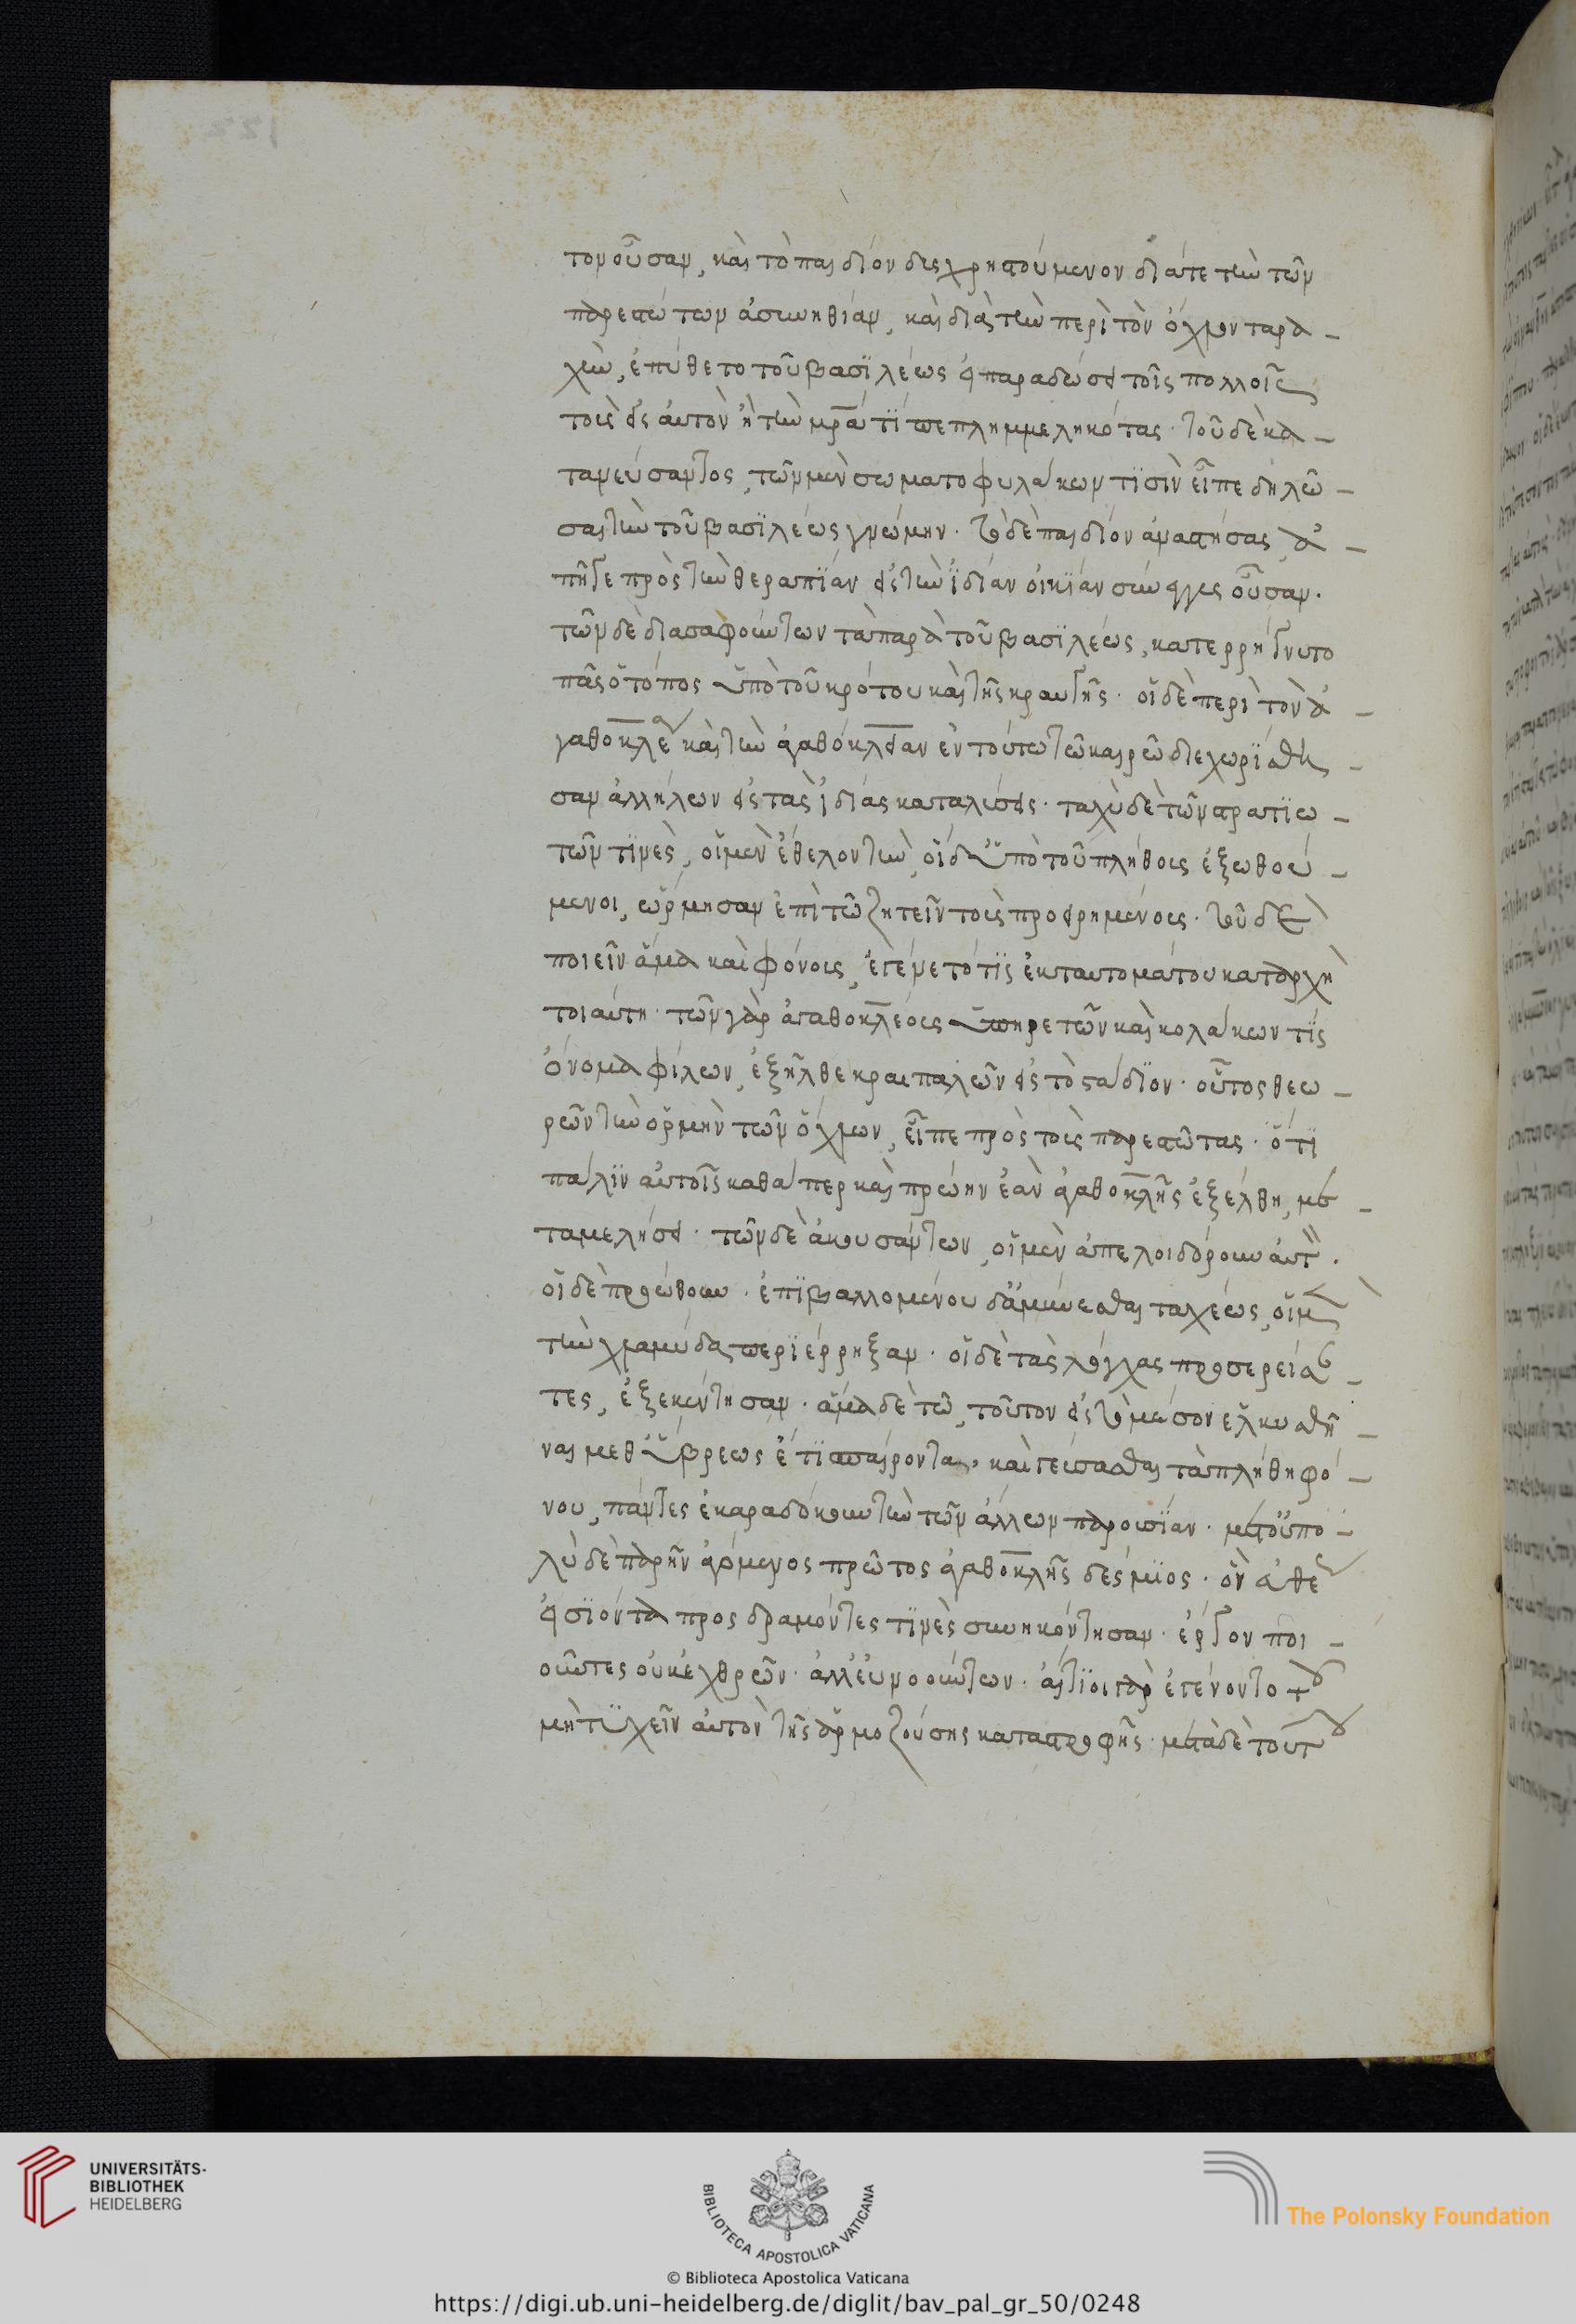 τονοῦσαν, καὶ τὸ παιδίον δυσχρηστούμενον διάτε τὴν τῶν
παρεστώτων ἀσυνηθίαν, καὶ διὰ τὴν περὶ τὸν ὄχλον ταρα-
χὴν, ἐπύθετο τοῦ βασϊλέως εἰ παραδώσει τοῖς πολλοῖς
τοὺς εἰς ἀυτὸν ἢ τὴν μρ̅α τϊ πεπλημμεληκότας· τοῦ δὲ κα-
τανεύσαντος, τῶν μὲν σωματοφυλάκων τϊσὶν εἶπε δηλῶ-
σαι τὴν τοῦ βασϊλέως γνώμην· τὸ δὲ παιδίον ἀναστήσας ἀ-
πῆγε πρὸς τὴν θεραπϊίαν εἰς τὴν ἰδίαν οἰκϊίαν σύνεγγυς οὖσαν.
τῶν δὲ διασαφούντων τὰ παρὰ τοῦ βασϊλέως, κατερρήγνυτο
πᾶς ὁ τόπος ὑπὸ τοῦ κρότου καὶ τῆς κραυγῆς· οἱ δὲ περὶ τὸν ἀ-
γαθοκλέα καὶ τὴν ἀγαθόκλειαν ἐν τούτω τῶ καιρῶ διεχωρϊσθη-
σαν ἀλλήλων εἰς τὰς ἰδίας καταλύσεις· ταχὺ δὲ τῶν στρατϊω-
τῶν τϊνὲς, οἱ μὲν ἐθελοντὴν, οἱ δ' ὑπὸ τοῦ πλήθους ἐξωθού-
μενοι, ὥρμησαν ἐπὶ τῶ ζητεῖν τοὺς προειρημένους· τοῦ δὲ
ποιεῖν ἅμα καὶ φόνους, ἐγένετό τϊς ἐκ ταυτομάτου καταρχὴ
τοιαύτη· τῶν γὰρ ἀγαθοκλέους ὑπηρετῶν καὶ κολάκων τϊς
ὄνομα φίλων, ἐξῆλθε κραιπαλῶν εἰς τὸ στάδϊον· οὗτος θεω-
ρῶν τὴν ὁρμὴν τῶν ὄχλων, εἶπε πρὸς τοὺς παρεστῶτας· ὅτϊ
πάλϊν ἀυτοῖς καθάπερ καὶ πρώην ἐὰν ἀγαθοκλῆς ἐξέλθη, με-
ταμελήσει· τῶν δὲ ἀκουσάντων, οἱ μὲν ἀπελοιδόρουν ἀυτ.
οἱ δὲ προώθουν· ἐπϊβαλλομένου δ' ἀμύνεσθαι ταχέως, οἱ μὲν
τὴν χλαμύδα περϊέρρηξαν· οἱ δὲ τὰς λόγχας προσερείσαν-
τες, ἐξεκέντησαν· ἅμα δὲ τῶ, τοῦτον εἰς τὸ μέσον ἑλκυσθῆ-
ναι μεθ' ὕβρεως ἔτϊ σπαίροντα, καὶ γεύσασθαι τὰ πλήθη φό-
νου, πάντες ἐκαραδόκουν τὴν τῶν ἄλλων παρουσϊίαν· μετ' οὐ πο-
λὺ δὲ παρῆν ἀγόμενος πρῶτος ἀγαθοκλῆς δέσμϊος· ὃν ἐυθέως
εἰσϊόντα προσδραμόντες τϊνὲς συνηκόντησαν· ἔργον ποι-
οῦντες οὐκ ἐχθρῶν· ἀλλ' ἐυνοούντων· ἀίτϊοι γὰρ ἐγένοντο τοῦ
μὴ τϋχεῖν ἀυτὸν τῆς ἁρμοζούσης καταστροφῆς· μετὰ δὲ τοῦτον
UNIVERSITÄTS-
BIBLIOTHEK
HEIDELBERG
BIBLIOTECA APOSTOLICA VATICANA
The Polonsky Foundation
© Biblioteca Apostolica Vaticana
https://digi.ub.uni-heidelberg.de/diglit/bav_pal_gr_50/0248